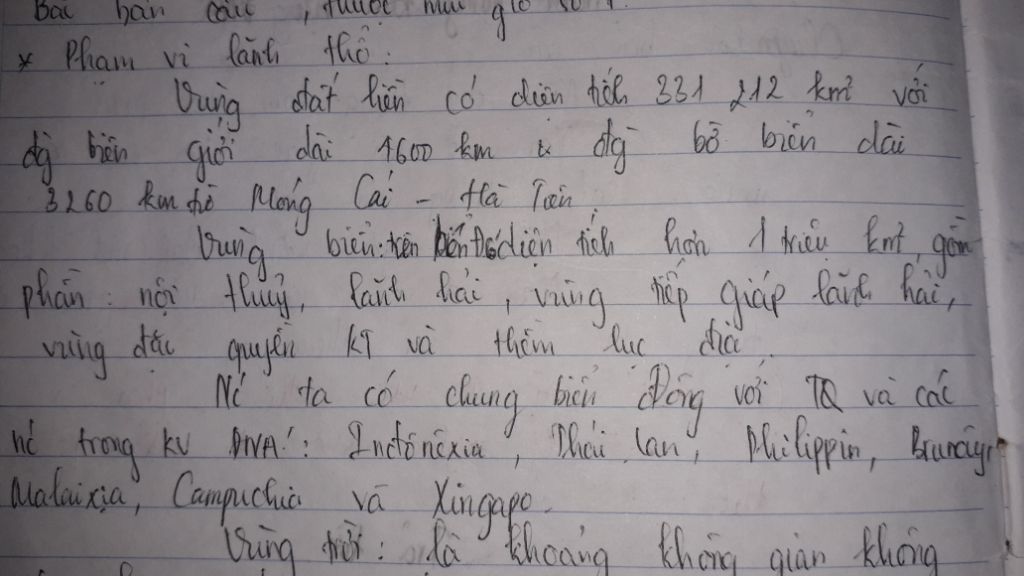 Bắc bán cầu, thuộc múi giờ số 7.
* Phạm vi lãnh thổ:
Vùng đất liền có diện tích 331 212 km² với
đg biên giới dài 4600 km & đg bờ biển dài
3260 km từ Móng Cái - Hà Tiên
Vùng biển: trên diện tích hơn 1 triệu km², gồm
phần: nội thuỷ, lãnh hải, vùng tiếp giáp lãnh hải,
vùng đặc quyền KT và thềm lục địa.
Nc ta có chung biển Đông với TQ và các
nc trong kv ĐNA: Inđônêxia, Thái Lan, Philippin, Brunây,
Malaixia, Campuchia và Xingapo.
Vùng trời: là khoảng không gian không